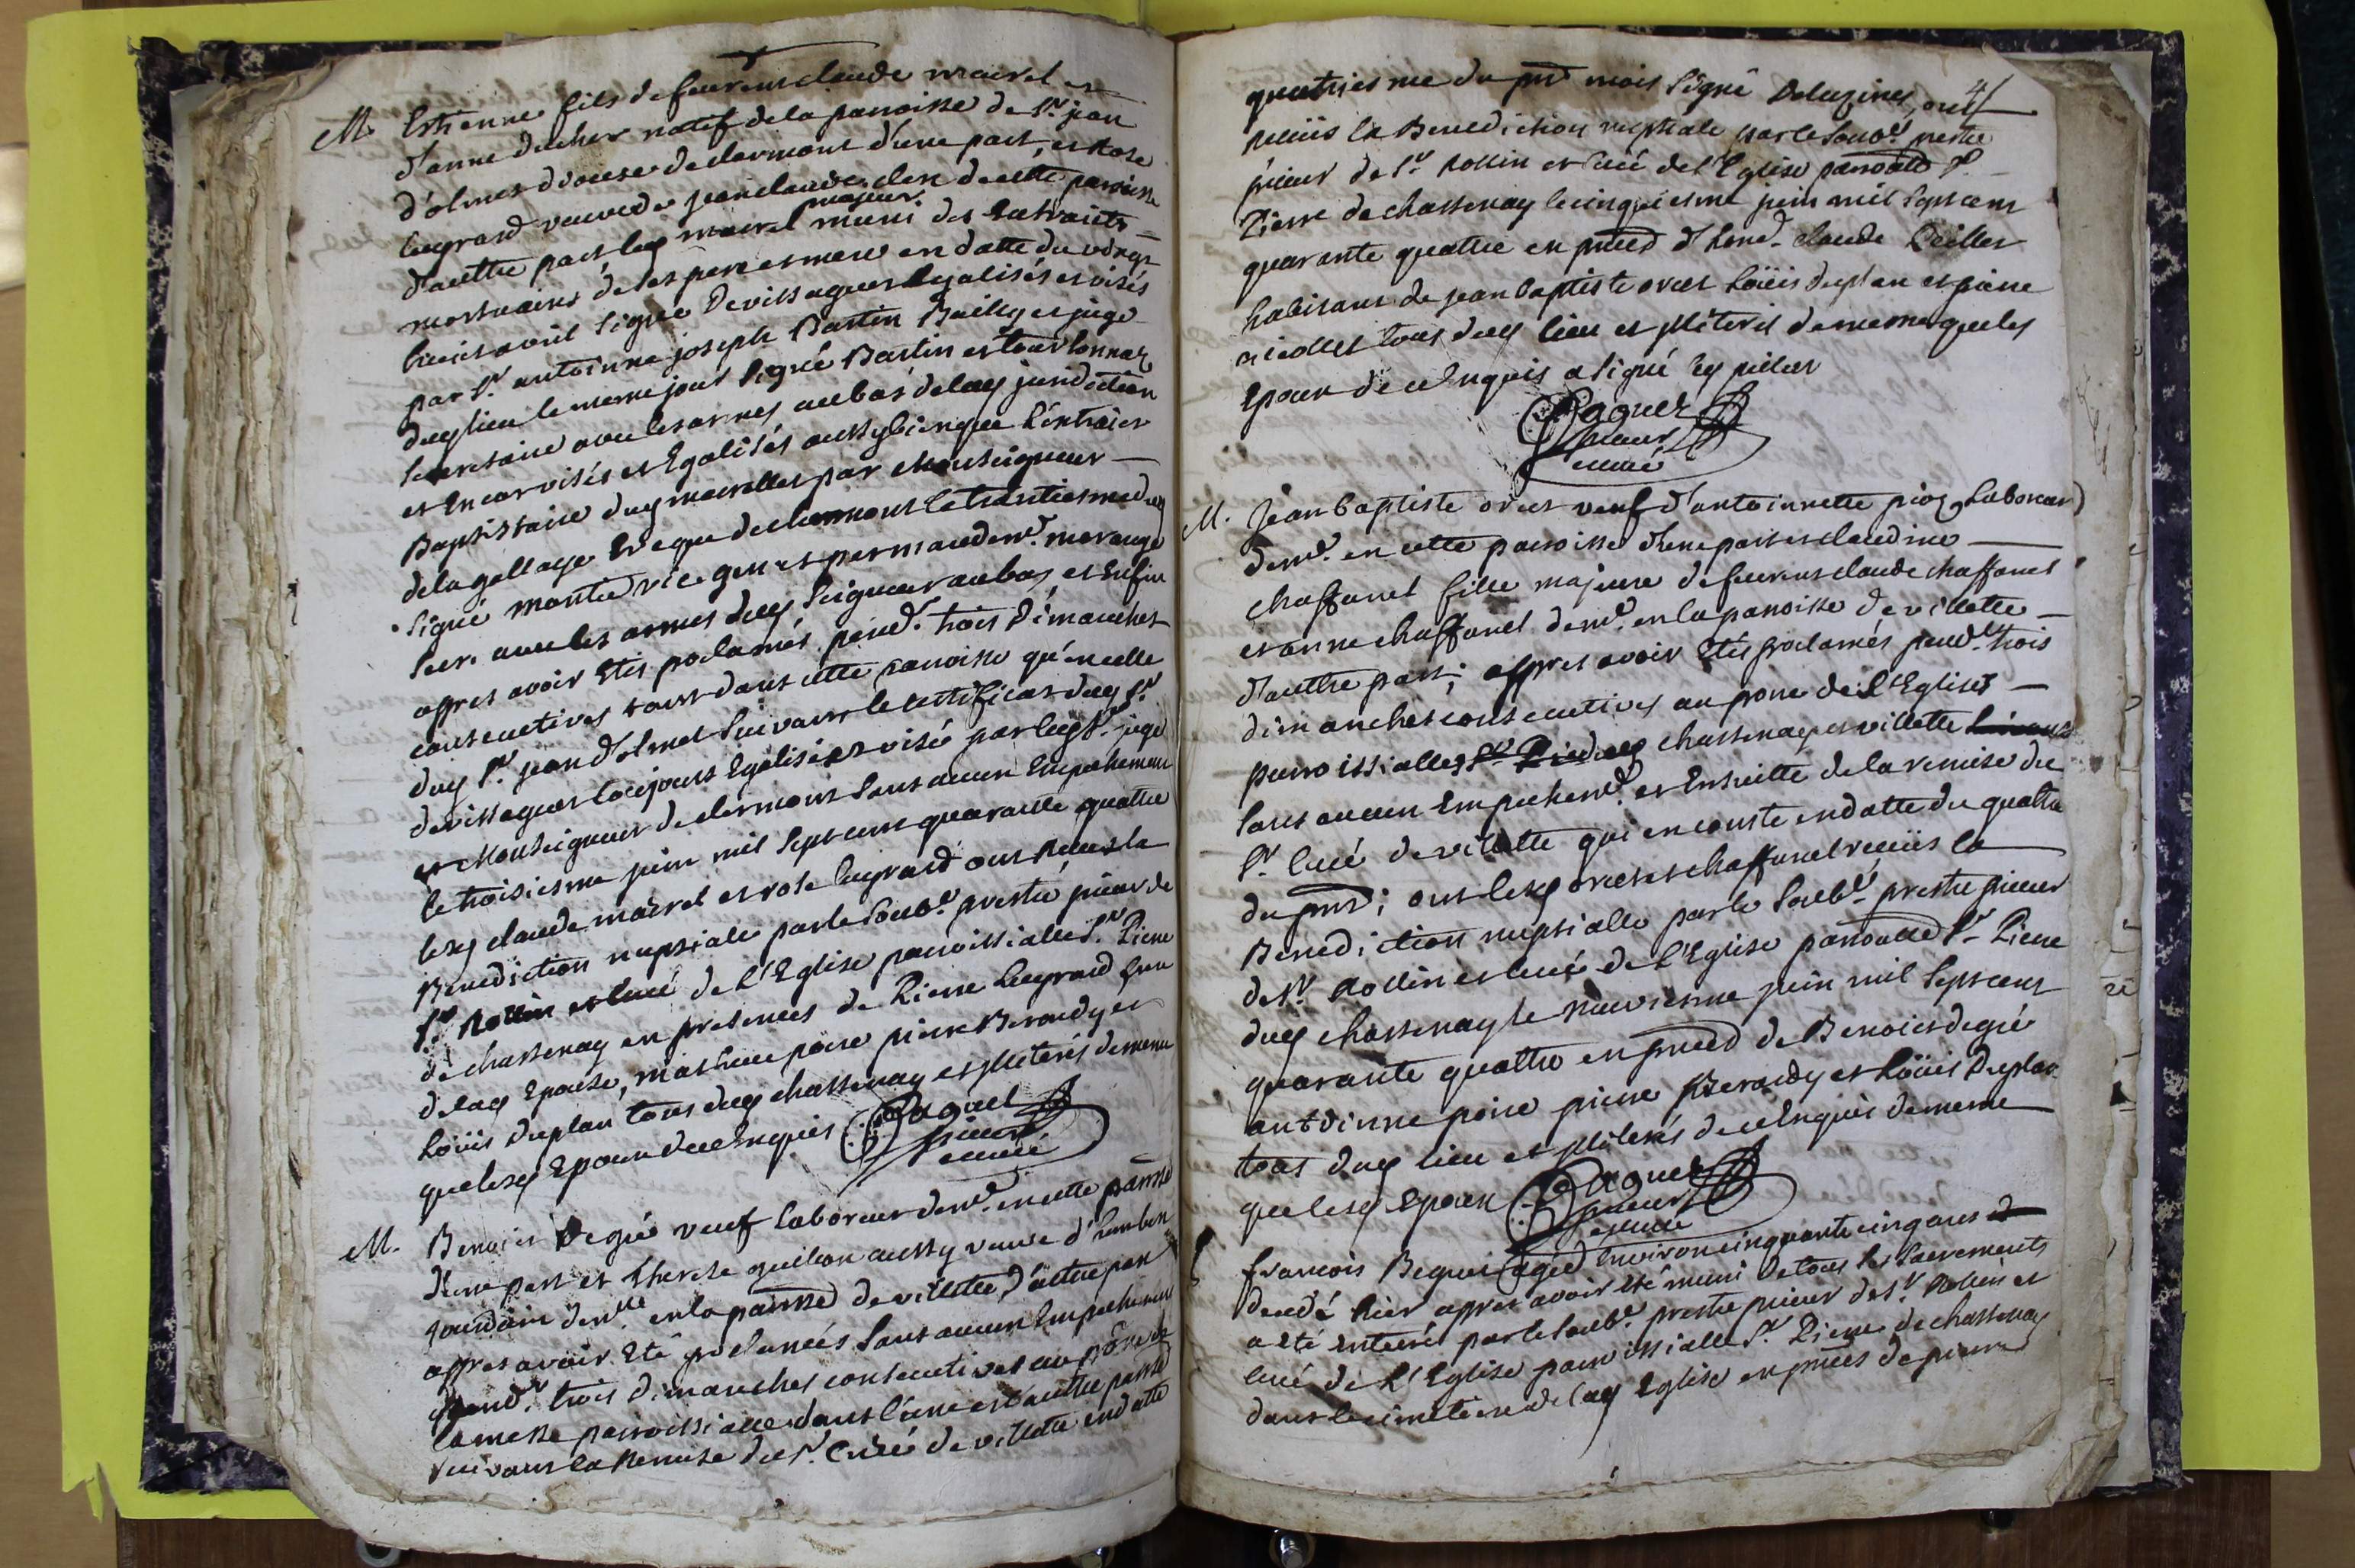 M. Estienne fils de feu remt claude mairet et
d'anne ducher natif de la paroisse de St. jean
d'olmet diocese de clermont d'une part, et Rose
lugrand veuve de jean claude clers de cette paroisse
d'auttre part led mairet majeur muni des Extraicts
mortuaires de ses pere et mere en datte du
huict avril signée Devissaguet legalisés et visés
par Sr. antoinne joseph Bartin Bailly et juge
dud lieu le meme jour signé Bartin et
secretaire avec les armes au bas de lad juridiction
et Encor visés et Egalisés aussy bien que l'extraict
Baptistaire dud mairet par Monseigneur
de la gallaye Eveque de clermont le trantiesme dud
signé vic. gen. et par mandemt. marange
secr. avec les armes dud seigneur au bas et Enfin
appres avoir Etés proclamés pendt. trois Dimanches
consecutives tant dans cette paroisse qu'en celle
dud St. jean d'olmet suivant le certificat dud Sr.
devissaguet toujours Egalisé et visé par led Sr. juge
et Monseigneur de clermont sans aucun Empechement
le troisiesme juin mil sept cent quarante quattre
lesd claude mairet et rose lugrand ont receus la
Benediction nuptiale par le soubé. prestre prieur de
St. Rollin et curé de l'Eglise paroissialle St. Pierre
de chassenay en presences de Pierre lugrand
de lad Epouse, mathieu poire pierre Beraudy et
Loüis duplan tous dud chassenay et illiterés de meme
que lesd Epoux de ce Enquis Paquet
prieur
et curé
M. Benoist Degré veuf laboreur demt. en cette parroisse
d'une part et Therese guillon aussy veuve d'humbert
jourdain demte. en la parroisse de villette d'auttre part
appres avoir Eté proclamés sans aucun Empechement
pendt. trois dimanches consecutives au prône de
la messe paroissialle dans l'une et l'auttre parroisse
suivant la Remise du Sr. Curé de villette en datte
4
quatriesme du pnt mois signé Deluzines, ont
receüs la Benediction nuptiale par le soubé. prestre
prieur de St. Rollin et curé de l'Eglise parroialle St.
Pierre de chassenay le cinquiesme juin mil sept cent
quarante quattre en presence d'hond. claude Peillet
habitant de jean baptiste orcet Loüis duplan et pierre
niollet tous dud lieu et illiterés de meme que les
Epoux de ce Enquis a signé led peillet
Paquet
prieur
et curé
M. Jean baptiste orcet veuf d'antoinnette pioz Laboreur
demt. en cette paroisse d'une part et claudine
chaffanel fille majeure de feu remt claude chaffanel
et anne chaffanel demt. en la paroisse de villette
d'auttre part; appres avoir Etés proclamés pendt. trois
dimanches consecutives au prone des Eglises
parroissialles St. Pierre dud chassenay et villette
sans aucun Empechemt. et Ensuitte de la remise du
Sr. curé de villette qui en conste en datte du quattre
du pnt; ont lesd orcet et chaffanel receüs la
Benediction nuptialle par le soubé. prestre prieur
de St. Rollin et curé de l'Eglise parroialle St. Pierre
dud chassenay le neuviesme juin mil sept cent
quarante quattre en presence de Benoist degré
antoinne poire pierre Beraudy et Loüis Duplan
tous dud lieu et illiterés de ce Enquis de meme
que lesd Epoux Paquet
prieur
et curé
francois Beguet agé d'Environ cinquante cinq ans
decedé hier appres avoir eté muni de tous les sacrements
a eté enterré par le soubé. prestre prieur de St. Rollin et
curé de l'Eglise paroissialle St. Pierre de chassenay
dans le cimetiere de lad Eglise en presences de pierre